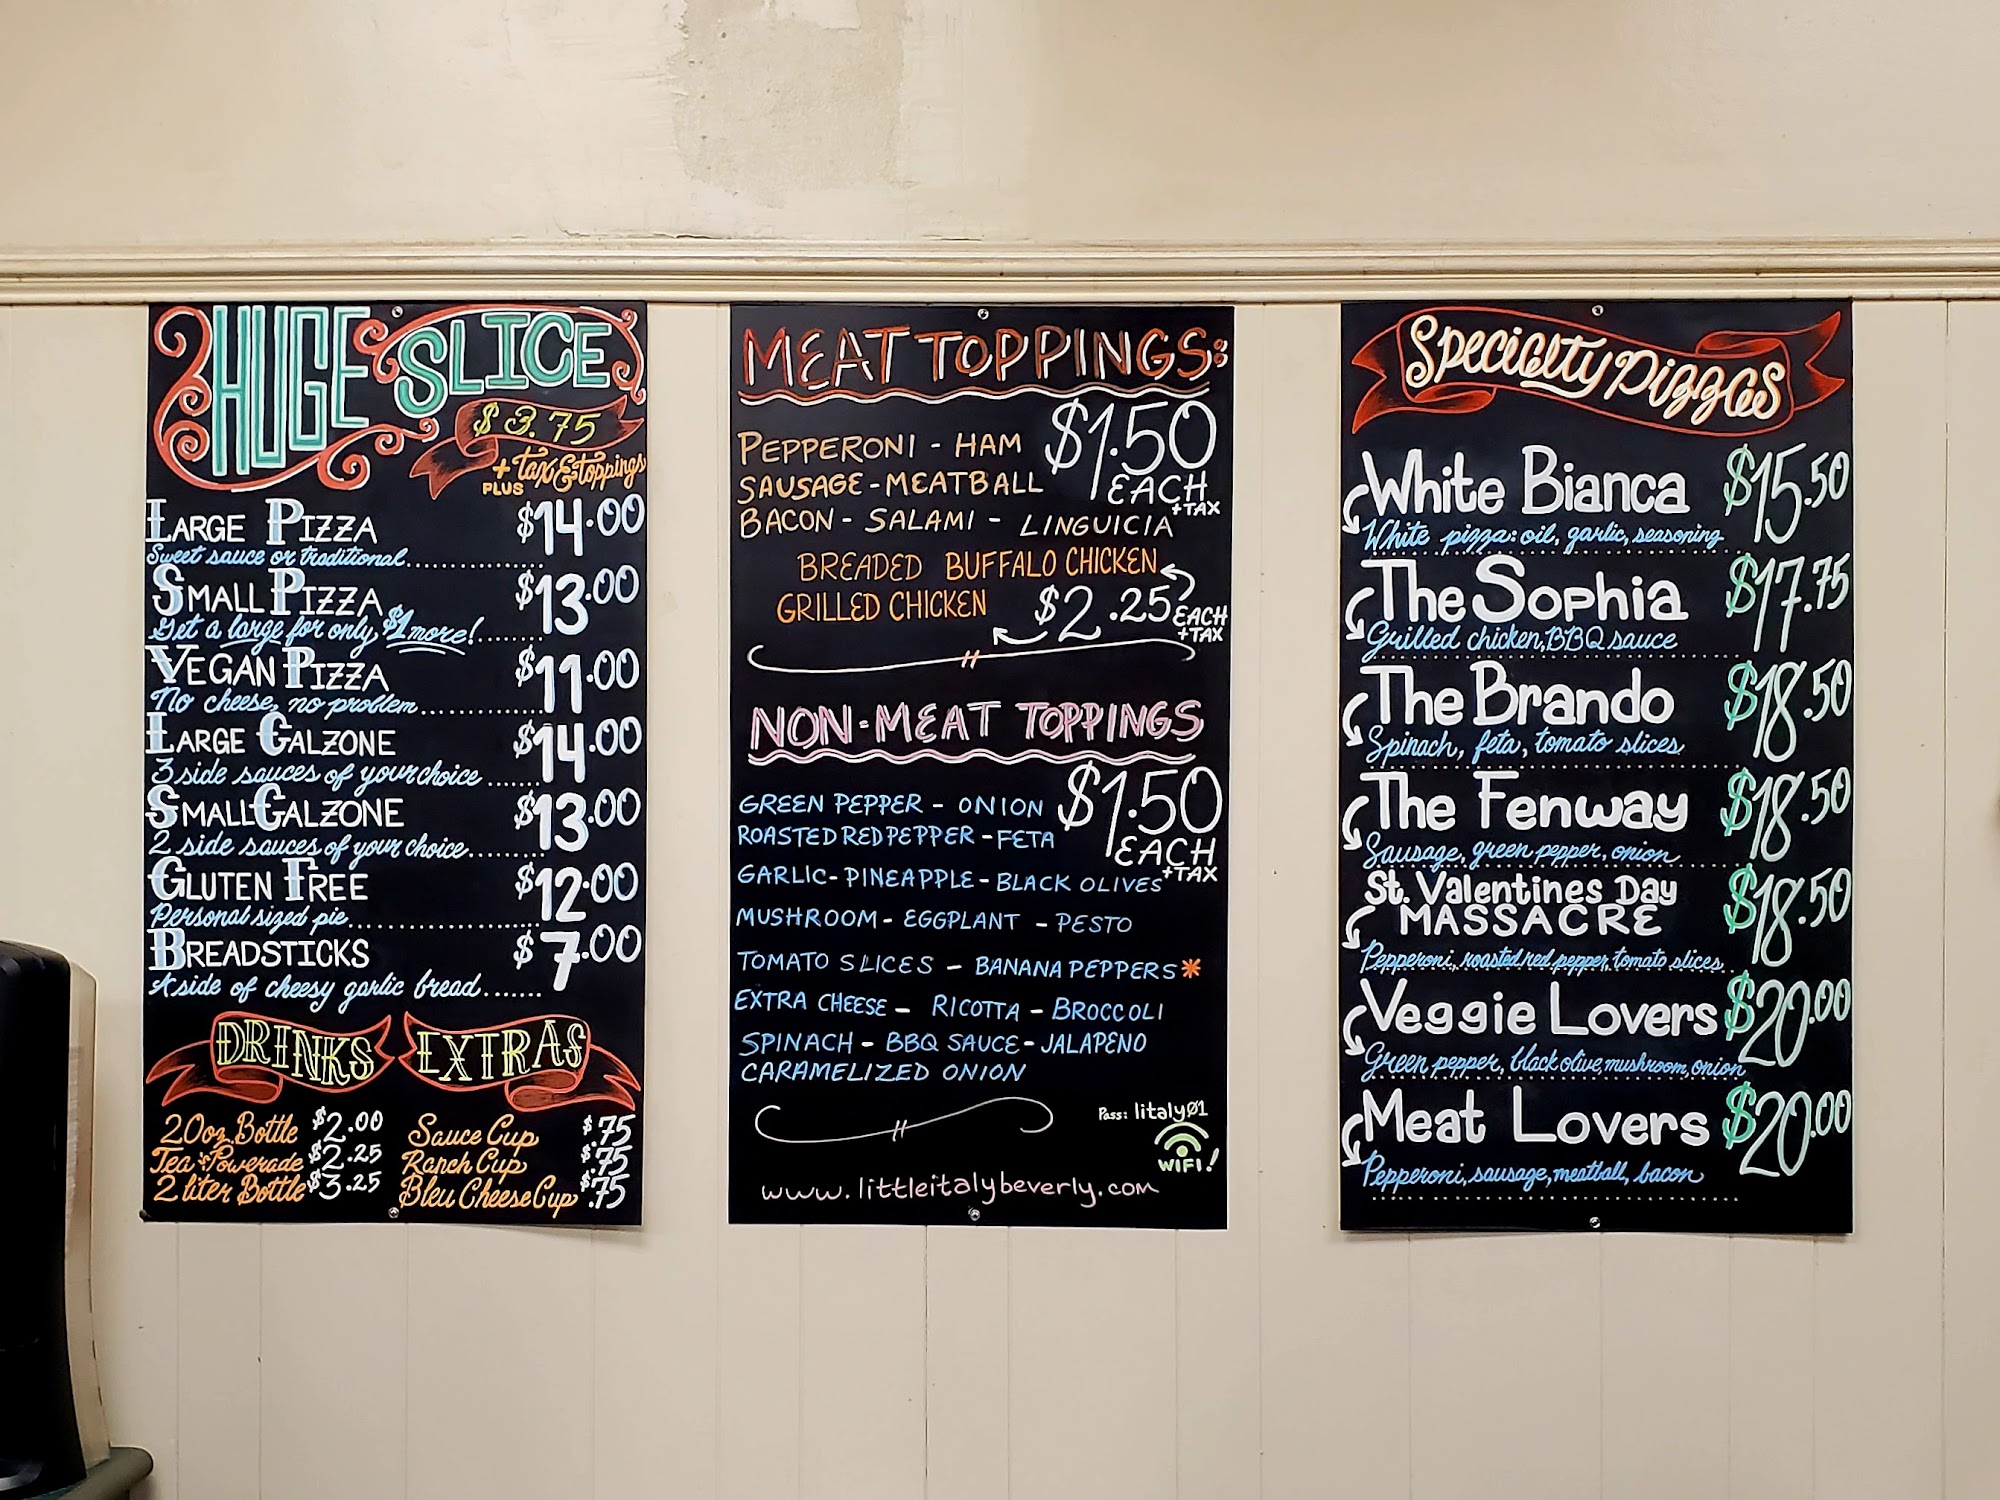 HUGE SLICE
$3.75
+ tax & toppings
PLUS
LARGE PIZZA $14.00
Sweet sauce or traditional..............
SMALL PIZZA $13.00
Get a large for only $1 more!.......
VEGAN PIZZA $11.00
No cheese, no problem.............
LARGE CALZONE $14.00
3 side sauces of your choice......
SMALL CALZONE $13.00
2 side sauces of your choice........
GLUTEN FREE $12.00
Personal sized pie....................
BREADSTICKS $7.00
A side of cheesy garlic bread.......
DRINKS
20oz Bottle $2.00
Tea & Powerade $2.25
2 liter Bottle $3.25
EXTRAS
Sauce Cup $.75
Ranch Cup $.75
Bleu Cheese Cup $.75
MEAT TOPPINGS:
PEPPERONI - HAM
SAUSAGE - MEATBALL
BACON - SALAMI - LINGUICIA
$1.50
EACH
+TAX
BREADED BUFFALO CHICKEN
GRILLED CHICKEN $2.25 EACH
+TAX
NON-MEAT TOPPINGS
$1.50
EACH
+TAX
GREEN PEPPER - ONION
ROASTED RED PEPPER - FETA
GARLIC - PINEAPPLE - BLACK OLIVES
MUSHROOM - EGGPLANT - PESTO
TOMATO SLICES - BANANA PEPPERS*
EXTRA CHEESE - RICOTTA - BROCCOLI
SPINACH - BBQ SAUCE - JALAPENO
CARAMELIZED ONION
Pass: litaly01
WIFI!
www.littleitalybeverly.com
Specialty Pizzas
White Bianca $15.50
White pizza: oil, garlic, seasoning
The Sophia $17.75
Grilled chicken, BBQ sauce
The Brando $18.50
Spinach, feta, tomato slices
The Fenway $18.50
Sausage, green pepper, onion
St. Valentines Day
MASSACRE $18.50
Pepperoni, roasted red pepper, tomato slices
Veggie Lovers $20.00
Green pepper, black olive, mushroom, onion
Meat Lovers $20.00
Pepperoni, sausage, meatball, bacon